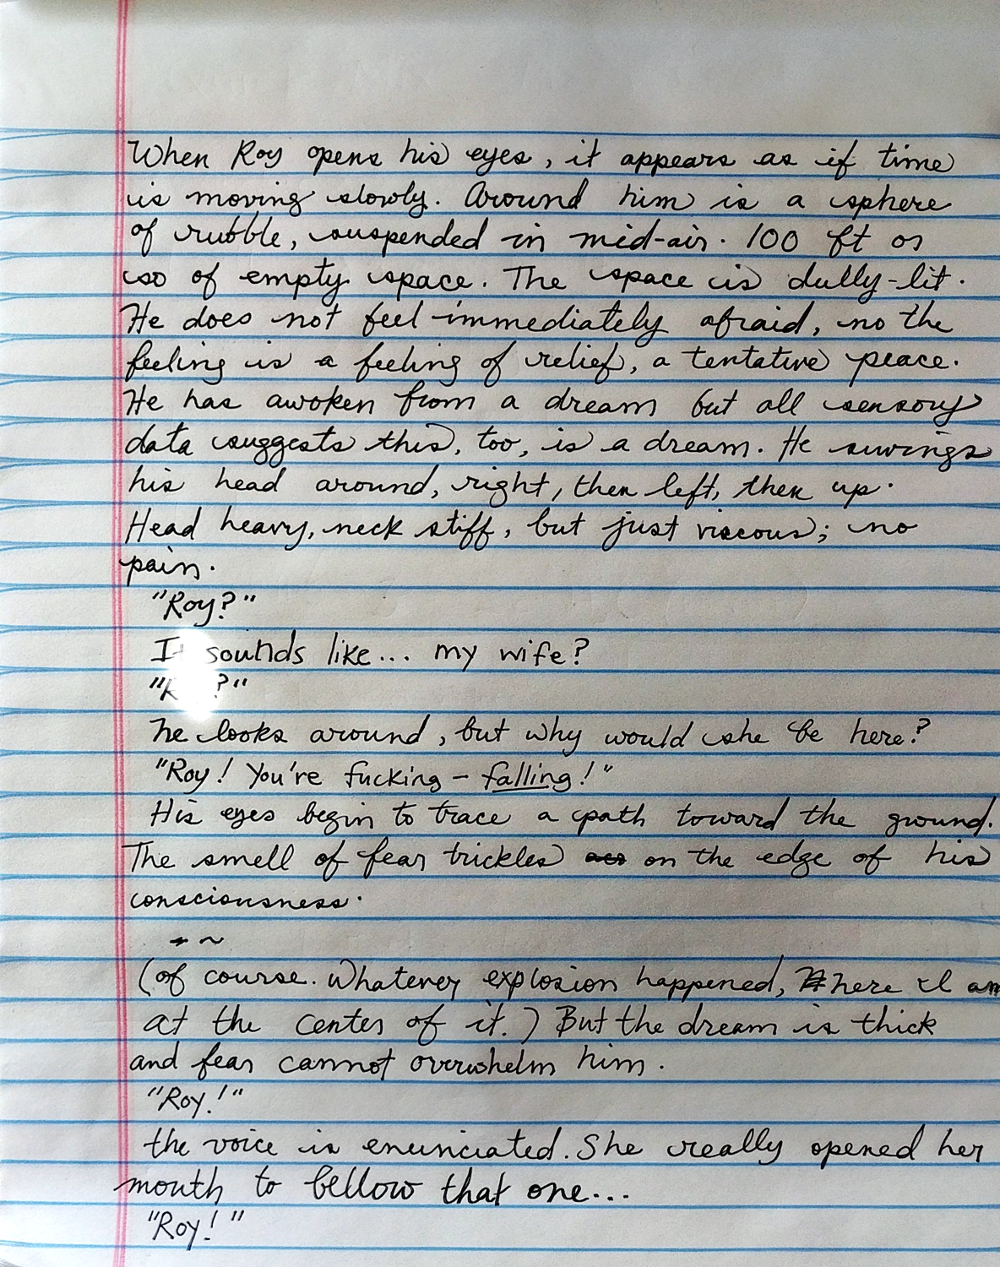 When Roy opens his eyes, it appears as if time
is moving slowly. Around him is a sphere
of rubble, suspended in mid-air. 100 ft or
so of empty space. The space is dully-lit.
He does not feel immediately afraid, no the
feeling is a feeling of relief, a tentative peace.
He has awoken from a dream but all sensory
data suggests this, too, is a dream. He swings
his head around, right, then left, then up.
Head heavy, neck stiff, but just viscous; no
pain.
"Roy?"
It sounds like... my wife?
"R ?"
he looks around, but why would she be here?
"Roy! You're fucking - falling!"
His eyes begin to trace a path toward the ground.
The smell of fear trickles on the edge of his
consciousness.
~ ~
(of course. Whatever explosion happened, here I am
at the center of it.) But the dream is thick
and fear cannot overwhelm him.
"Roy!"
the voice is enunciated. She really opened her
mouth to bellow that one...
"Roy!"